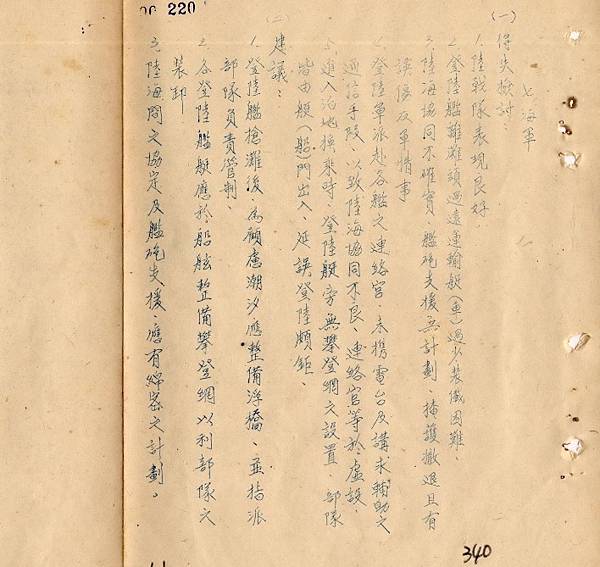 220
七 海軍
(一) 得失檢討：
1. 陸戰隊表現良好。
2. 登陸艦離碓頭過遠運輸艇(車)過少裝儎困難、
3. 陸海協同不確實、艦砲支援無計劃、掩護撤退且有
誤傷友軍情事
4. 登陸軍派赴各艦之連絡官、未携電台及講求輔助之
通信手段、以致陸海協同不良、連絡官等於虛設、
5. 進入泊地換乘時、登陸艇旁無攀登網之設置、部隊
皆由艇(船)門出入、延誤登陸頗鉅、
(二) 建議：
1. 登陸艦搶灘後、為顧慮潮汐應整備浮橋、並指派
部隊負責管制、
2. 各登陸艦艇應於船舷整備攀登網以利部隊之
裝卸
3. 陸海間之協定及艦砲支援、應有綿密之計劃。
340